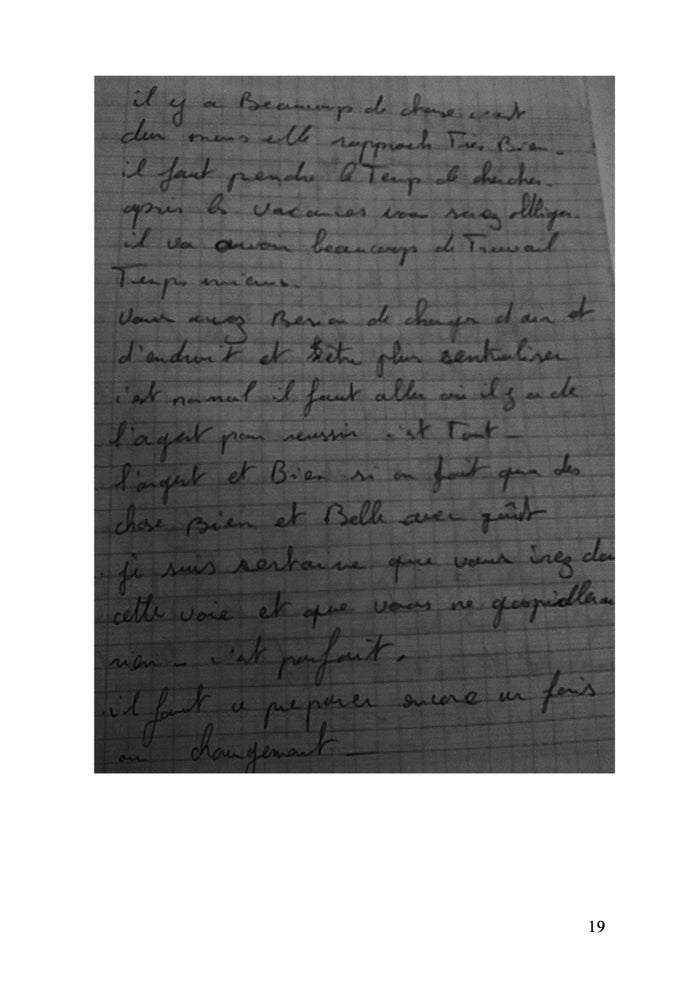 il y a Beaucoup de chose c'est
dur mais elle rapporte Très Bien.
il faut prendre le Temps de chercher.
après les vacances vous serez obliger
il va avoir beaucoup de Travail
Temps mieux.
Vous avez Besion de changer d'air et
d'endroit et être plus sentraliser
c'est normal il faut aller où il y a de
l'agent pour reussir c'est Tout -
l'argent et Bien si on fait que des
chose Bien et Belle avec goût
je suis sertaine que vous irez da
cette voie et que vous ne
rien - c'est parfait.
il faut ce preparer encore un fois
au changement -
19